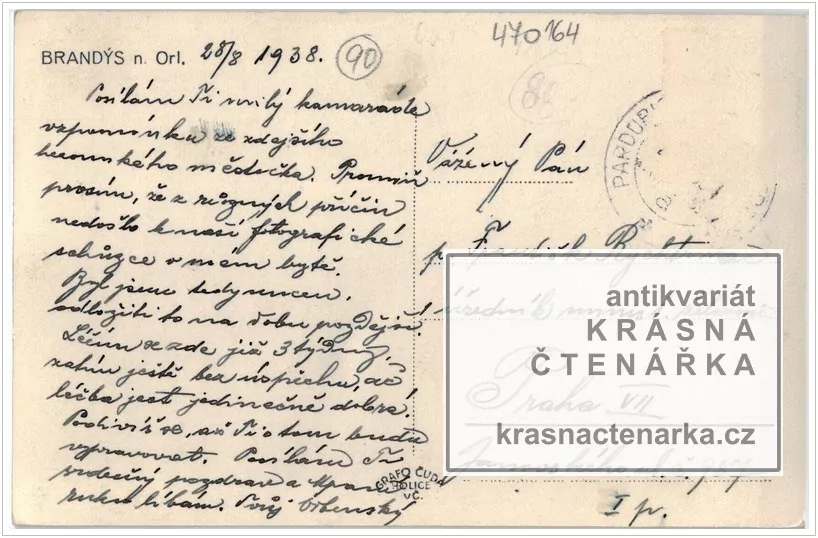 BRANDÝS n. Orl. 28/8 1938.
90
470164
Posílám Ti milý kamaráde
vzpomínku ze zdejšího
městečka. Promiň
prosím, že z různých příčin
nedošlo k naší fotografické
schůzce v mém bytě.
Byl jsem tedy nucen
odložiti to na dobu pozdější.
Léčím se zde již 3 týdny,
zatím ještě bez úspěchu, ač
léčba jest jedinečně dobrá.
Podivíš se, až Ti o tom budu
vypravovat. Posílám Ti
srdečný pozdrav a
ruku líbám. Tvůj
Vážený Pán
p. František
úředník
Praha VII
I p.
PARDUBI
GRAFO ČUDA
HOLICE
v Č.
antikvariát
KRÁSNÁ
ČTENÁŘKA
krasnactenarka.cz